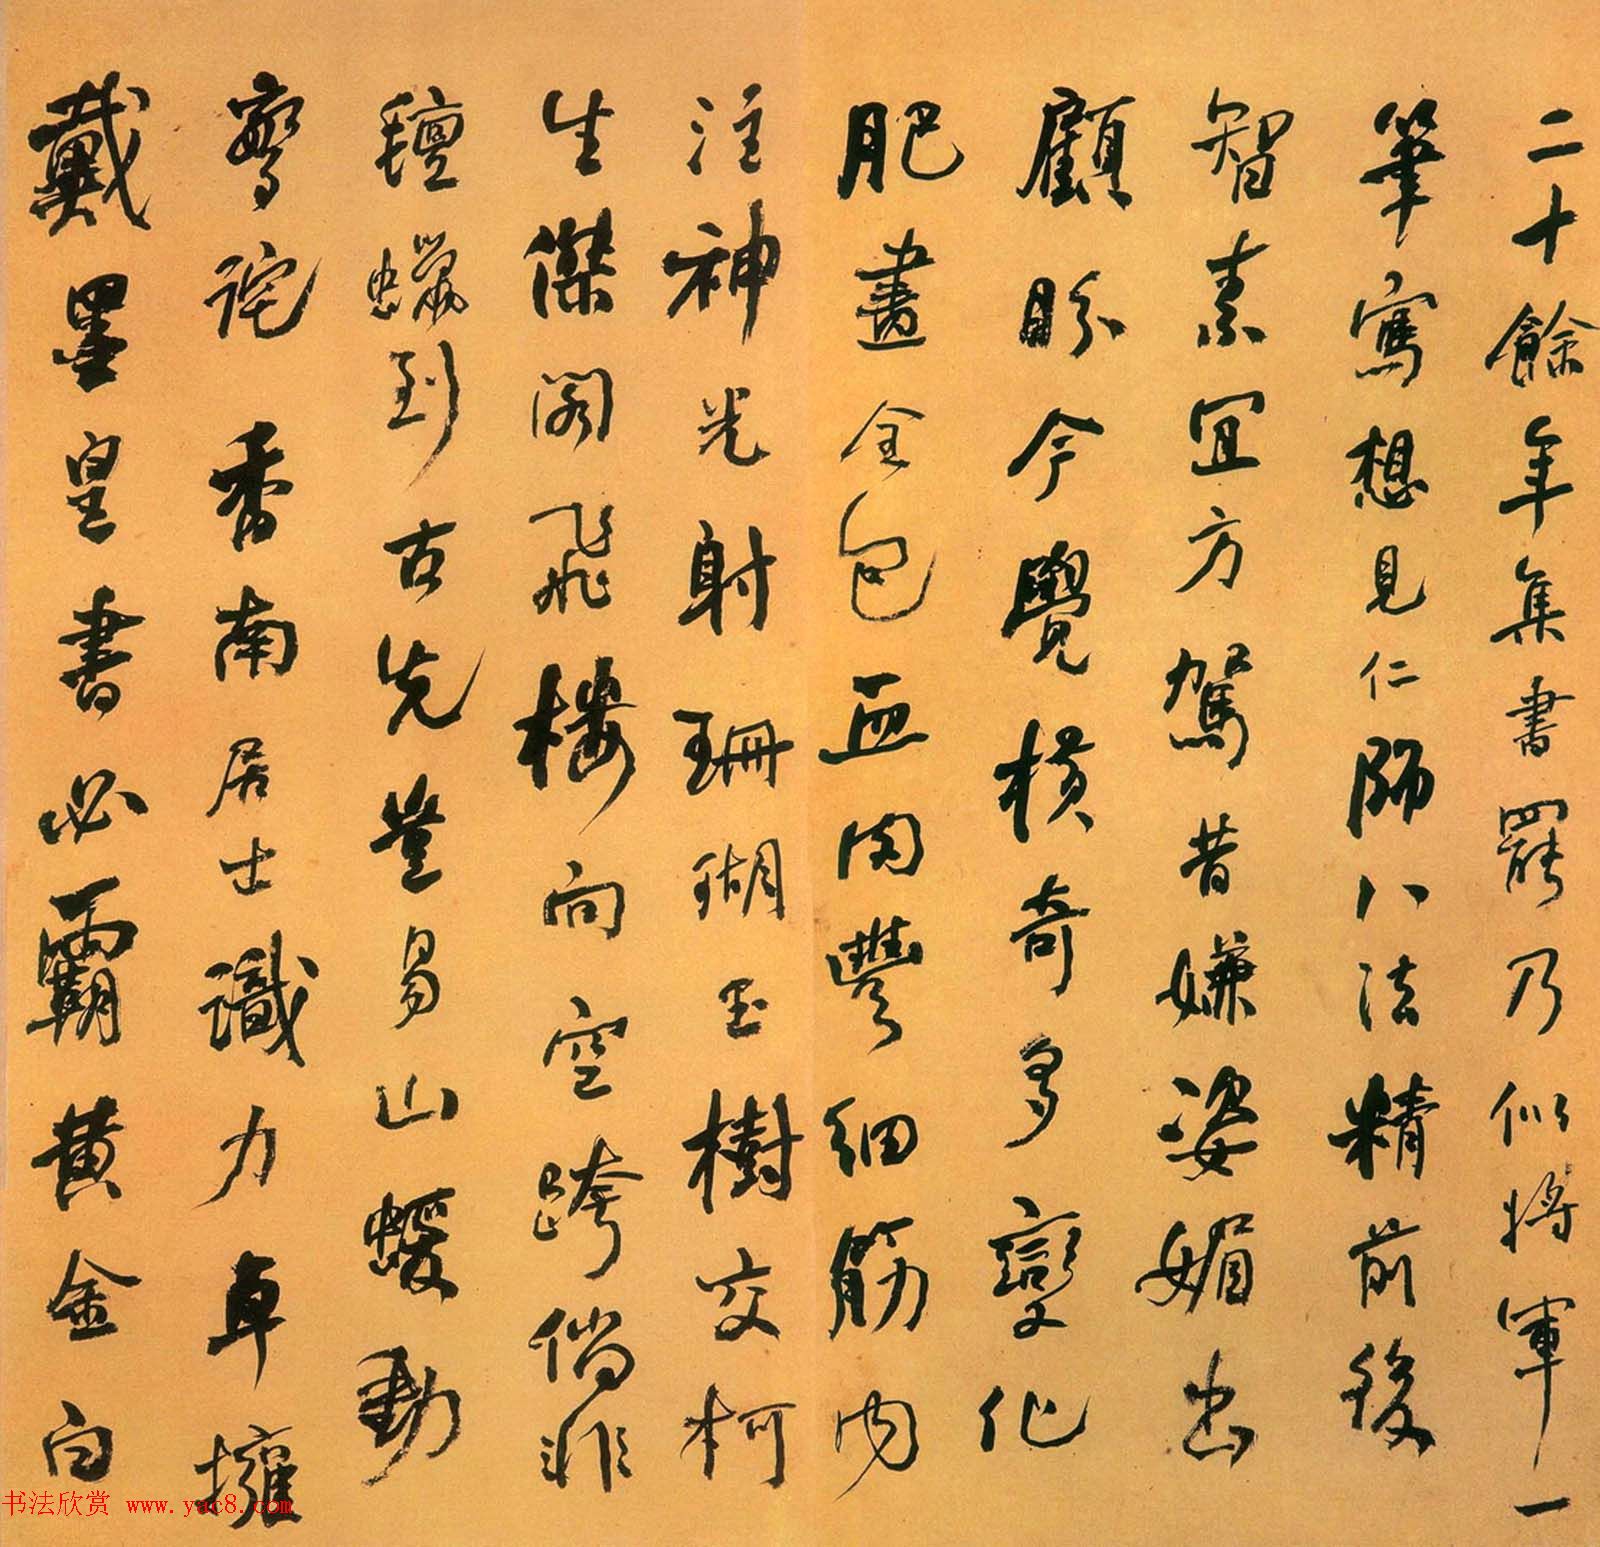 二十餘年集書罷乃似將軍一
筆寫想見仁師八法精前後
智素宜方駕昔嫌姿媚出
顧盼今覺橫奇多變化
肥畫全包血肉豐細筋內
注神光射珊瑚玉樹交柯
生傑閣飛樓向空跨倘非
氊蠟到古先豈易山蝯動
驚詫香南居士識力卓擁
戴墨皇書必霸黄金白
书法欣赏 www.yac8.com